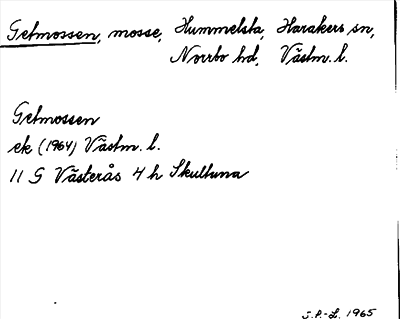 Getmossen, mosse, Hummelsta, Harakers sn,
Norrbo hd, Västm. l.
Getmossen
ek (1964) Västm. l.
11 G Västerås 4 h Skultuna
S.P.-L. 1965